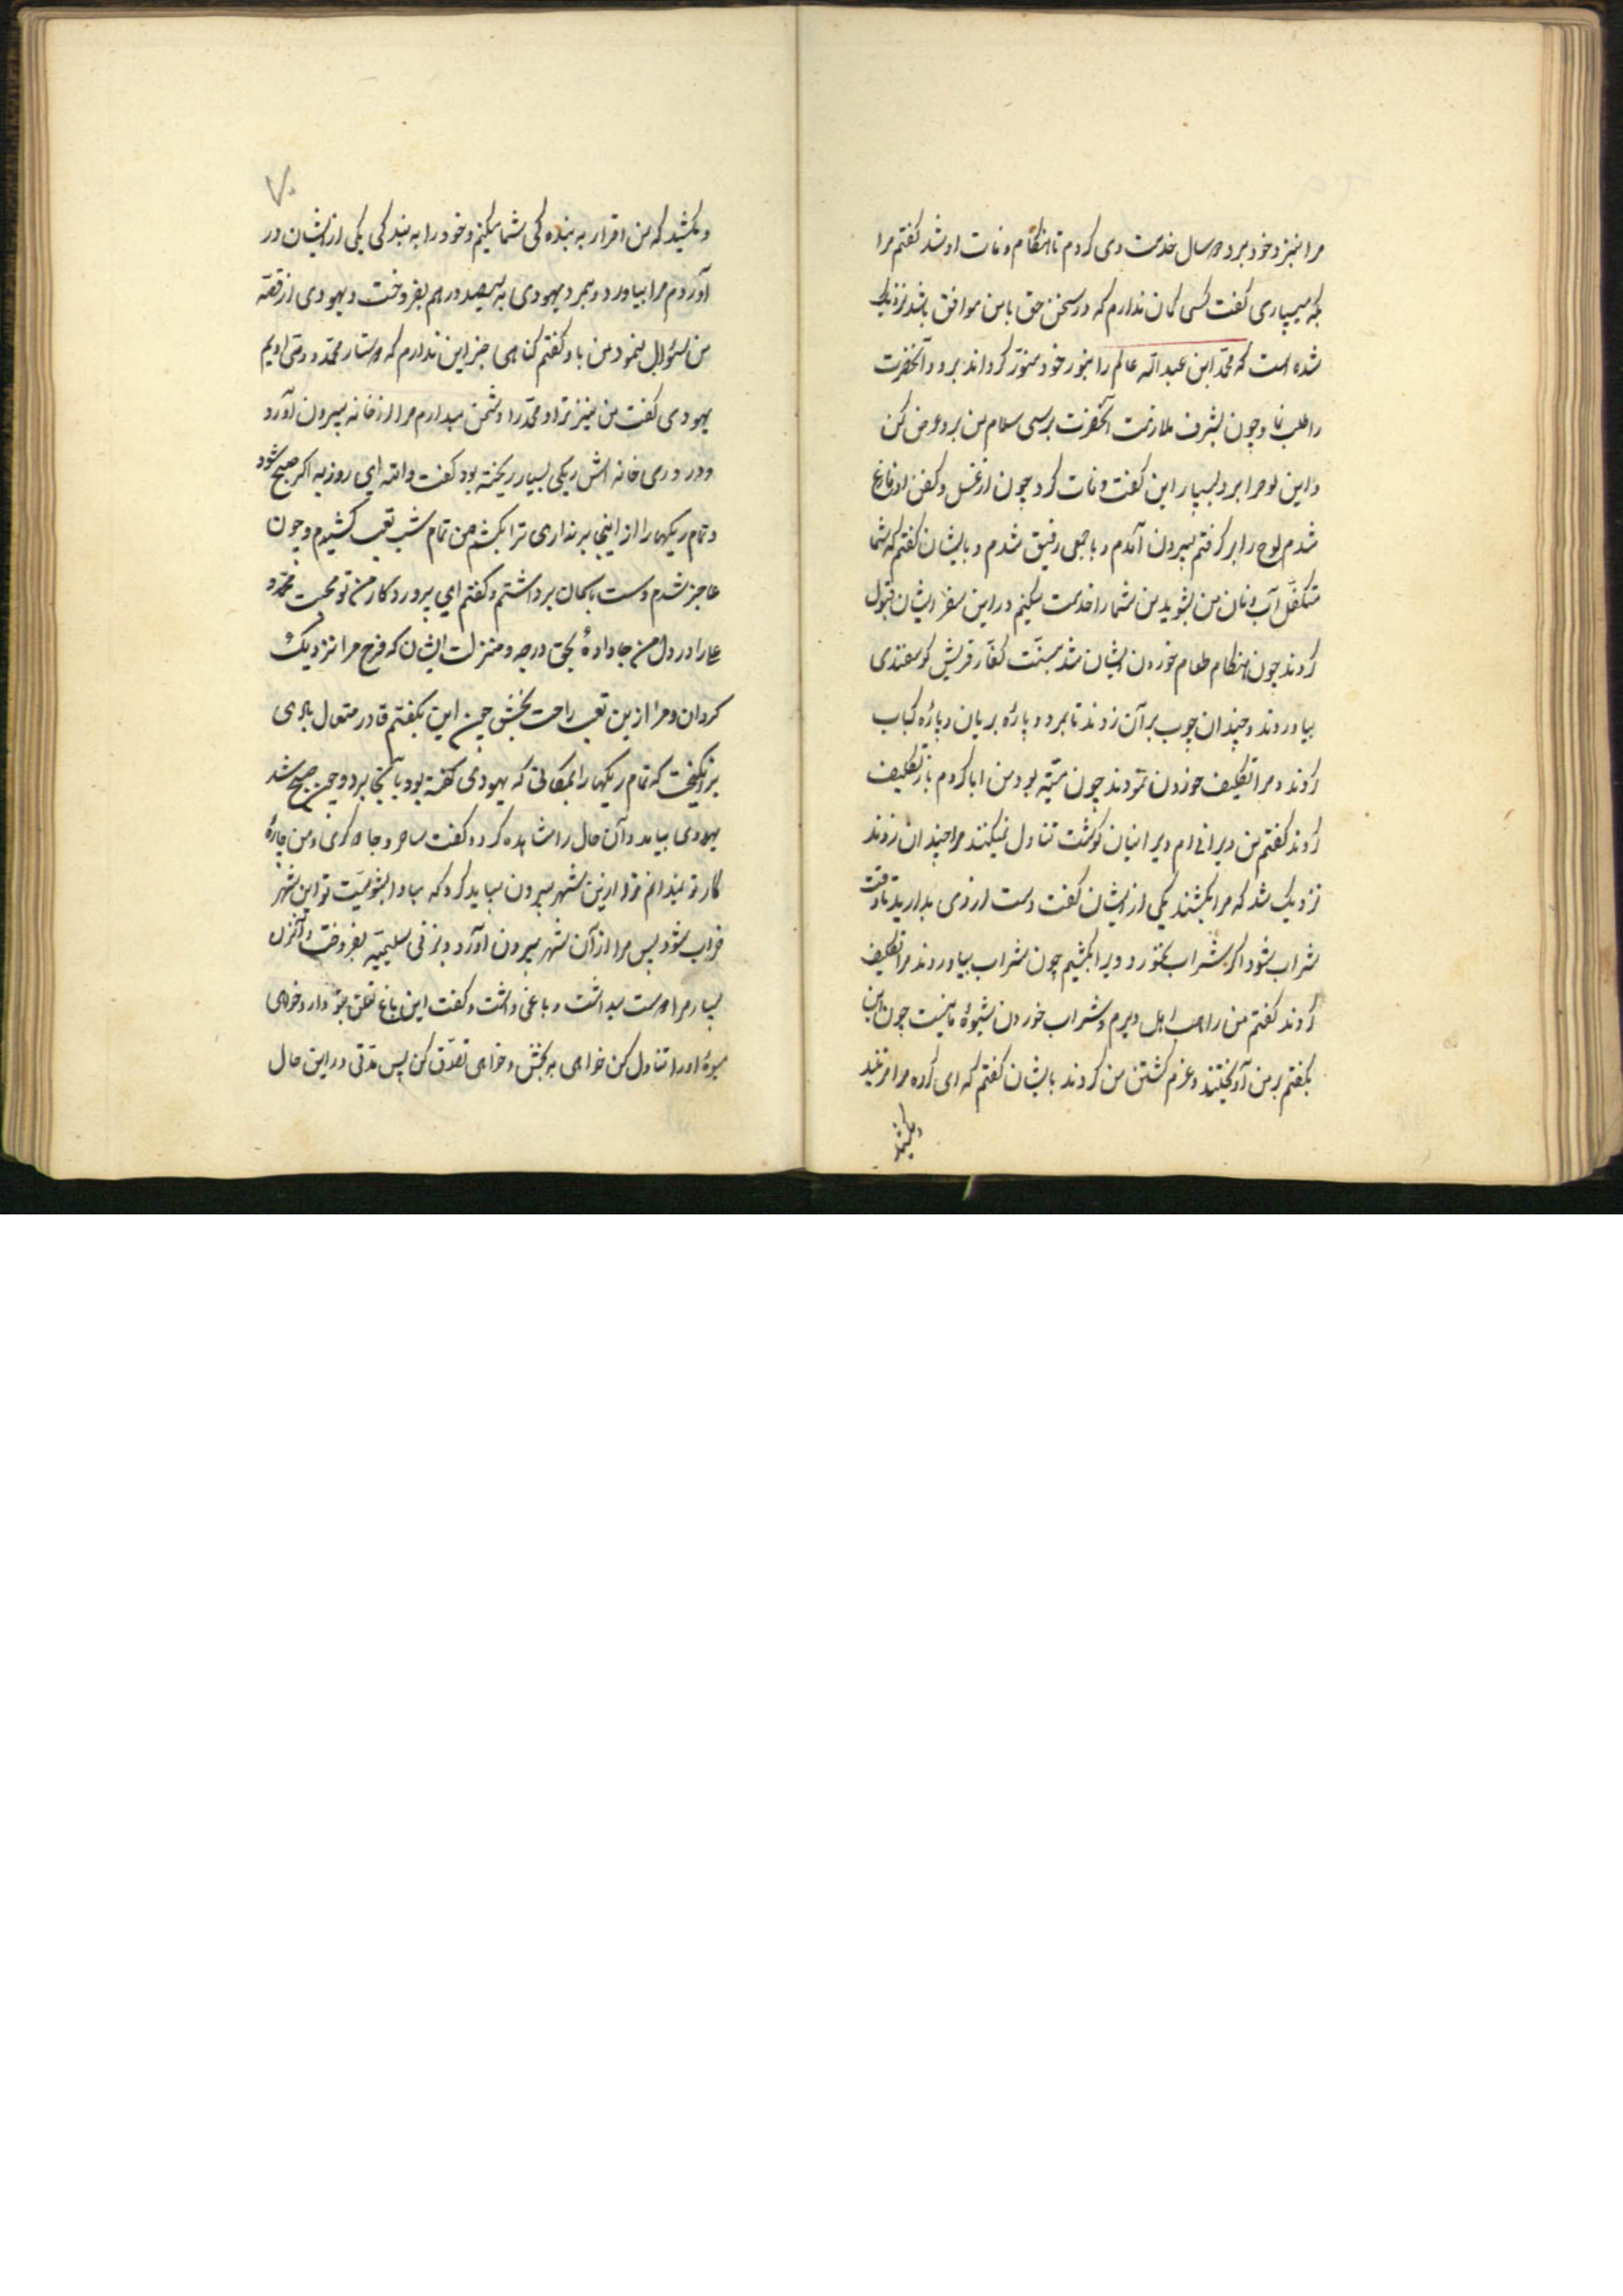 مرا بنزد خود برد دو سال خدمت وی کردم تا هنکام وفات او شد کفتم مرا
بکه میسپاری کفت کسی کمان ندارم که در سخن حق با من موافق باشد نزدیک
شده است که محمّد ابن عبد الله عالم را بنور خود منوّر کرداند برو و آنحضرت
را طلب نما و چون بشرف ملازمت آنحضرت برسی سلام من برو عرض کن
و این لوح را برو بسپار این کفت و وفات کرد چون از غسل و کفن او فارغ
شدم لوح را بر کرفتم بیرون آمدم و با جمعی رفیق شدم و بایشان کفتم که شما
متکفّل آب و نان من بشوید من شما را خدمت میکنم در این سفر ایشان قبول
کردند چون هنکام طعام خوردن ایشان شد بسنّت کفّار قریش کوسفندی
بیاوردند و چندان چوب بر آن زدند تا بمرد و پارهٔ بریان و پارهٔ کباب
کردند و مرا تکلیف خوردن نمودند چون میّته بود من ابا کردم باز تکلیف
کردند کفتم من دیرانی‌ام و دیرانیان کوشت تناول نمیکنند مرا چندان زدند
نزدیک شد که مرا بکشند یکی از ایشان کفت دست از وی بدارید تا وقت
شراب بشود اکر شراب نخورد ویرا بکشیم چون شراب بیاوردند مرا تکلیف
کردند کفتم من راهب اهل دیرم و شراب خوردن شیوهٔ ما نیست چون این
بکفتم بر من آویختند و عزم کشتن من کردند بایشان کفتم که ای کروه مرا مزنید
و مکشید
۷۰
و مکشید که من اقرار به بنده کی شما میکنم و خود را به بندکی یکی از ایشان در
آوردم مرا بیاورد و بمرد یهودی به سیصد درهم بفروخت و یهودی از قصّه
من سئوال نمود من باو کفتم کناهی جز این ندارم که دوستار محمّد و وصی اویم
یهودی کفت من نیز ترا و محمّد را دشمن میدارم مرا از خانه بیرون آورد
و در در‌ی خانه اش ریکی بسیار ریخته بود کفت والله ای روزبه اکر صبح شود
و تمام ریکها را از اینجا بر نداری ترا بکشم من تمام شب تعب کشیدم و چون
عاجز شدم دست باسمان برداشتم و کفتم ای پروردکار من تو محبت محمّد و
علی را در دل من جا دادهٔ بحق درجه و منزلت ایشان که فرج مرا نزدیک
کردان و مرا ازین تعب راحت بخش چون این بکفتم قادر متعال بادی
برانکیخت که تمام ریکها را بمکانی که یهودی کفته بود بآنجا برد و چون صبح شد
یهودی بیامد و آن حال را مشاهده کرد و کفت ساحر و جادوکری و من چارهٔ
کار تو نمیدانم ترا ازین شهر بیرون میباید کرد که مبادا بشومیّت تو این شهر
خراب شود پس مرا از آن شهر بیرون آورد و بزنی سلیمیّه بفروخت و آنزن
بسیار مرا دوست میداشت و باغی داشت و کفت این باغ تعلق بتو دارد خواهی
میوهٔ او را تناول کن خواهی به بخش و خواهی تصدّق کن پس مدّتی در این حال